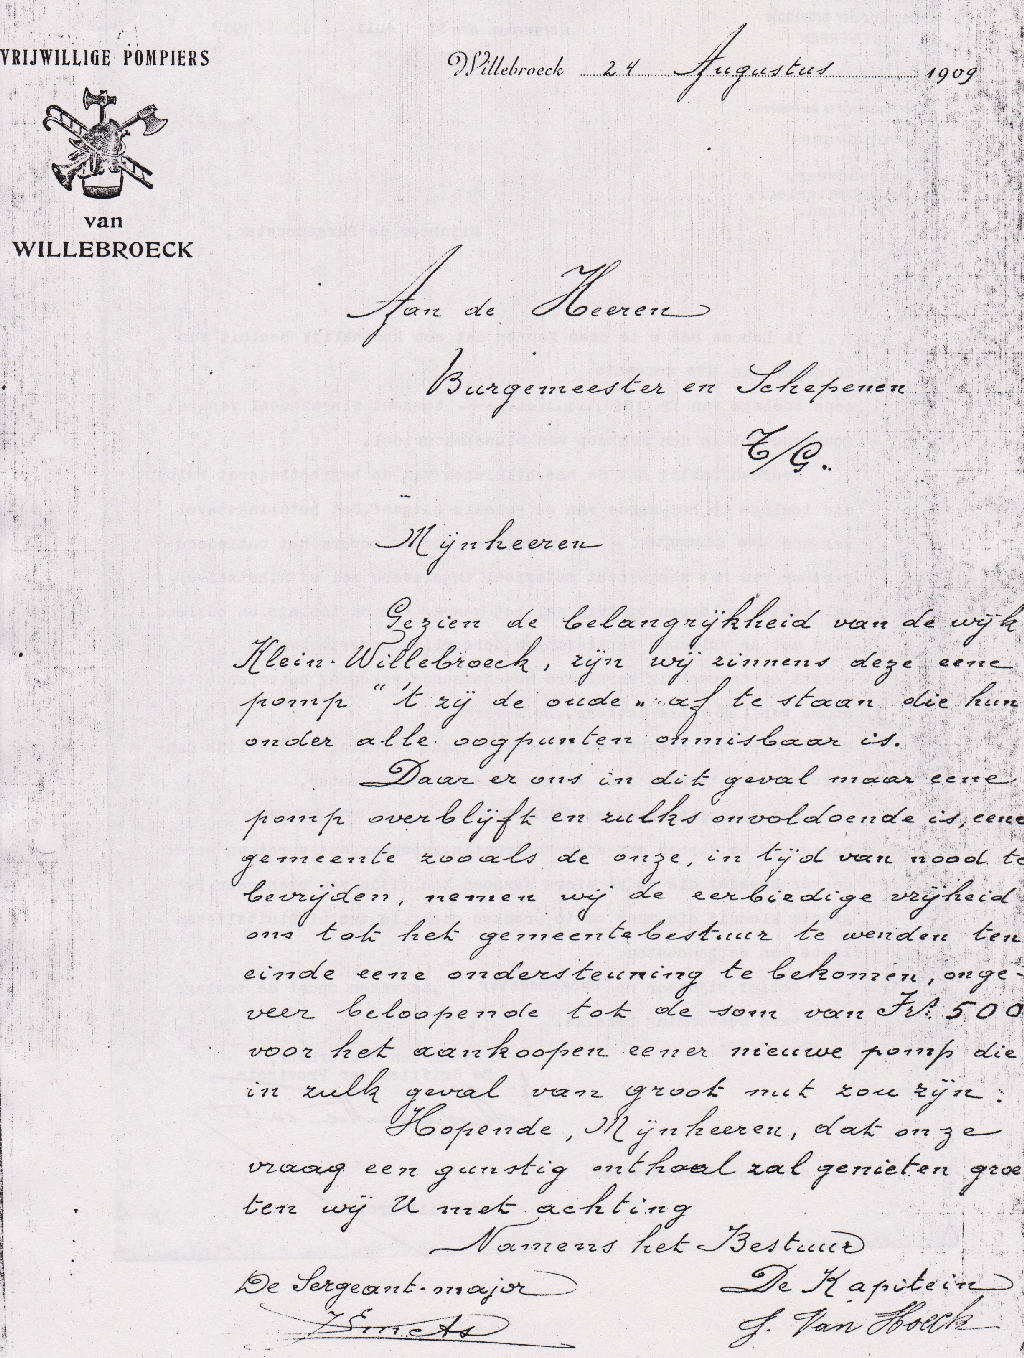 VRIJWILLIGE POMPIERS
van
WILLEBROECK
Willebroeck 24 Augustus 1909
Aan de Heeren
Burgemeester en Schepenen
T/G.
Mijnheeren
Gezien de belangrijkheid van de wijk
Klein-Willebroeck, zijn wij zinnens deze eene
pomp "'t zij de oude" af te staan die hun
onder alle oogpunten onmisbaar is.
Daar er ons in dit geval maar eene
pomp overblijft en zulks onvoldoende is, eene
gemeente zooals de onze, in tijd van nood te
bevrijden, nemen wij de eerbiedige vrijheid
ons tot het gemeentebestuur te wenden ten
einde eene ondersteuning te bekomen, onge-
veer beloopende tot de som van Frs. 500
voor het aankoopen eener nieuwe pomp die
in zulk geval van groot nut zou zijn:
Hopende, Mijnheeren, dat onze
vraag een gunstig onthaal zal genieten groe
ten wij U met achting
Namens het Bestuur
De Sergeant-major De Kapitein
Smets J. Van Hoeck